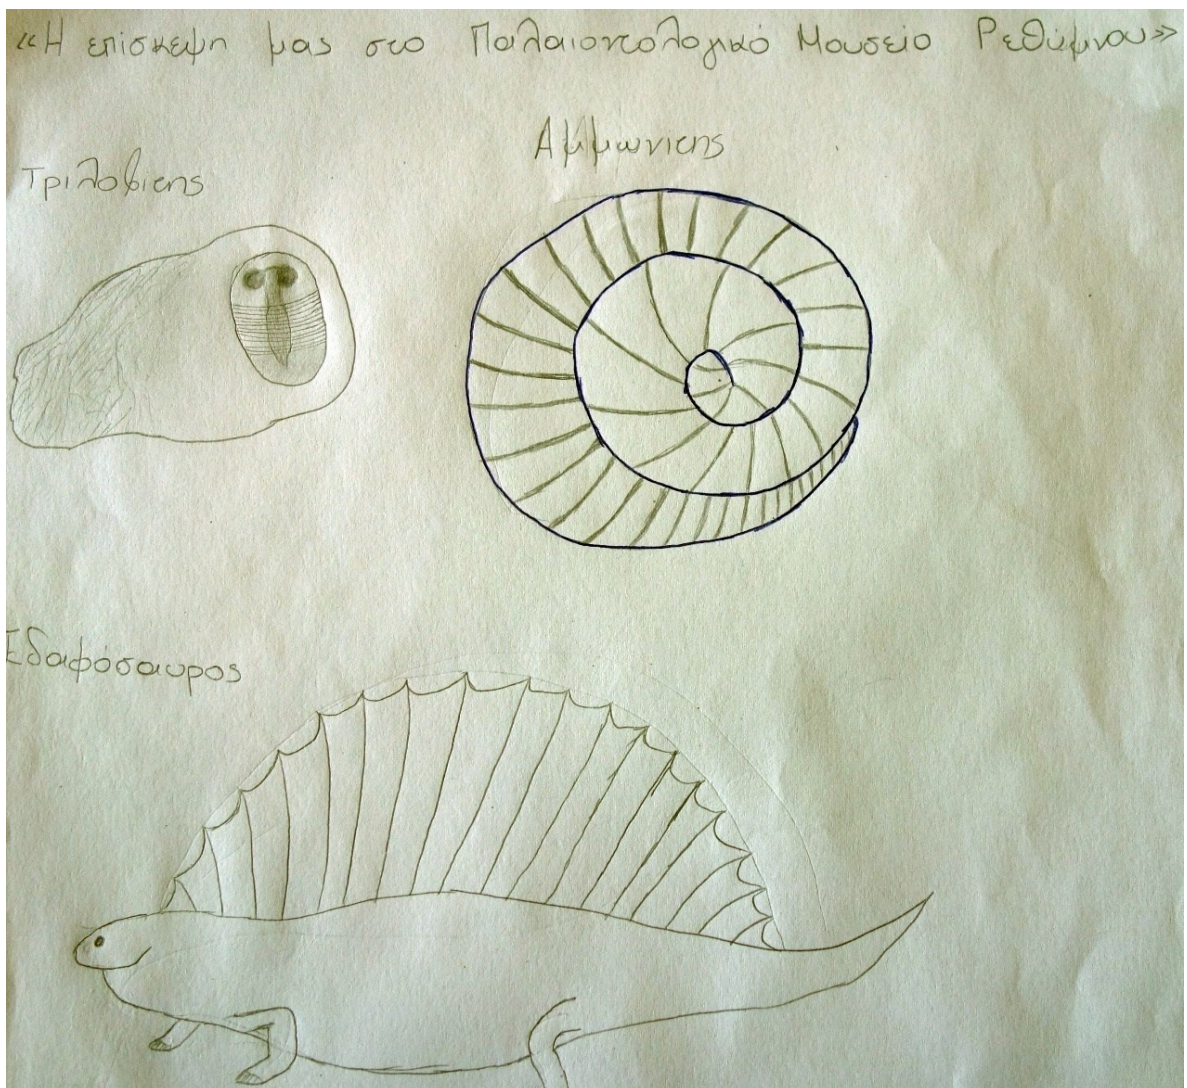 «Η επίσκεψη μας στο Παλαιοντολογικό Μουσείο Ρεθύμνου»
Αμμωνιτης
Τριλοβιτης
Εδαφόσαυρος